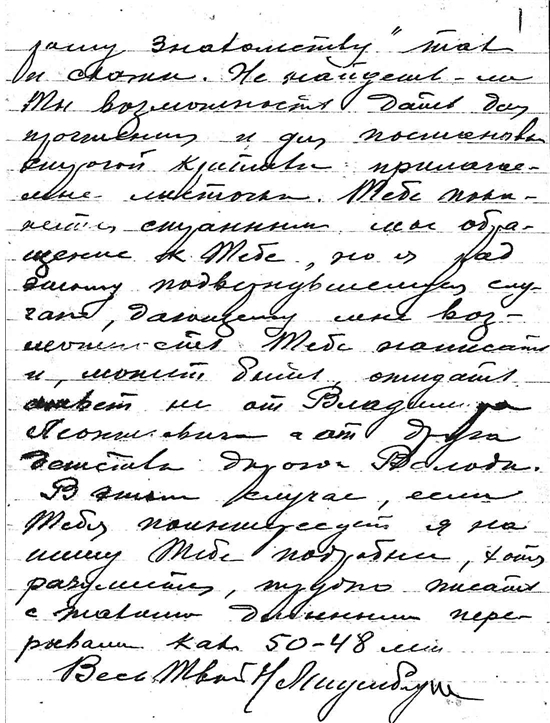 рому знакомству" так
и скажи. Не найдешь-ли
Ты возможность дать для
прочтения и для постановки
строгой критики прилагае-
мые листочки. Тебе пока-
жется странным мое обра-
щение к Тебе, но я рад
этому подвернувшемуся слу-
чаю, дающему мне воз-
можность Тебе написать
и, может быть, ожидать
ответ не от Владимира
а от друга
детства дорогого Володи.
В этом случае, если
Тебя поинтересует я на-
пишу Тебе подробнее, хотя
разумеется, трудно писать
с такими длинными пере-
рывами как 50-48 лет
Весь Твой Н